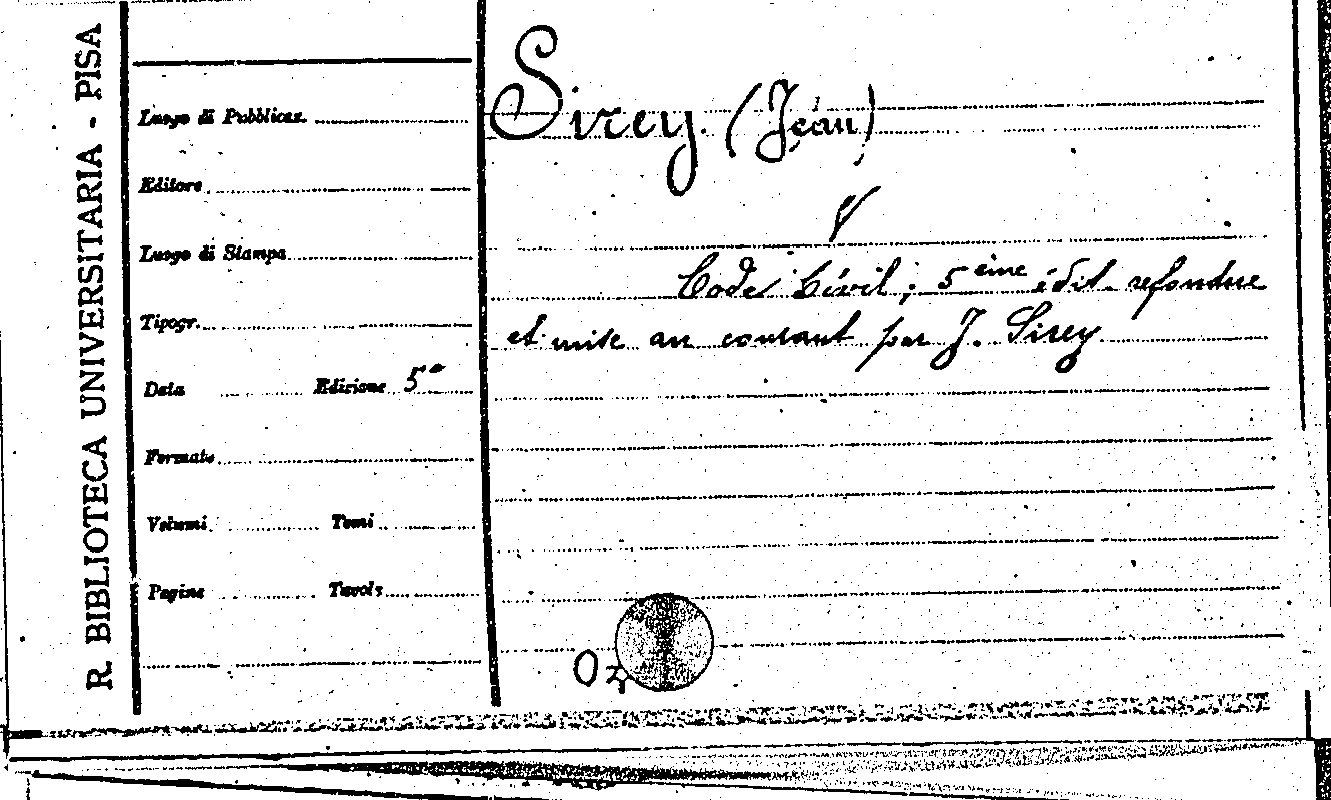 R. BIBLIOTECA UNIVERSITARIA - PISA
Luogo di Pubblicaz.
Editore
Luogo di Stampa
Tipogr.
Data Edizione 5ª
Formato
Volumi Tomi
Pagine Tavole
Sirey (Jean)
Code Civil; 5ème édit. refondue
et mise au courant par J. Sirey